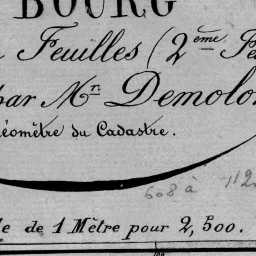 BOURG
Feuilles (2eme
par Mr. Demolo
éomètre du Cadastre.
608 à 112
de 1 Mètre pour 2,500.